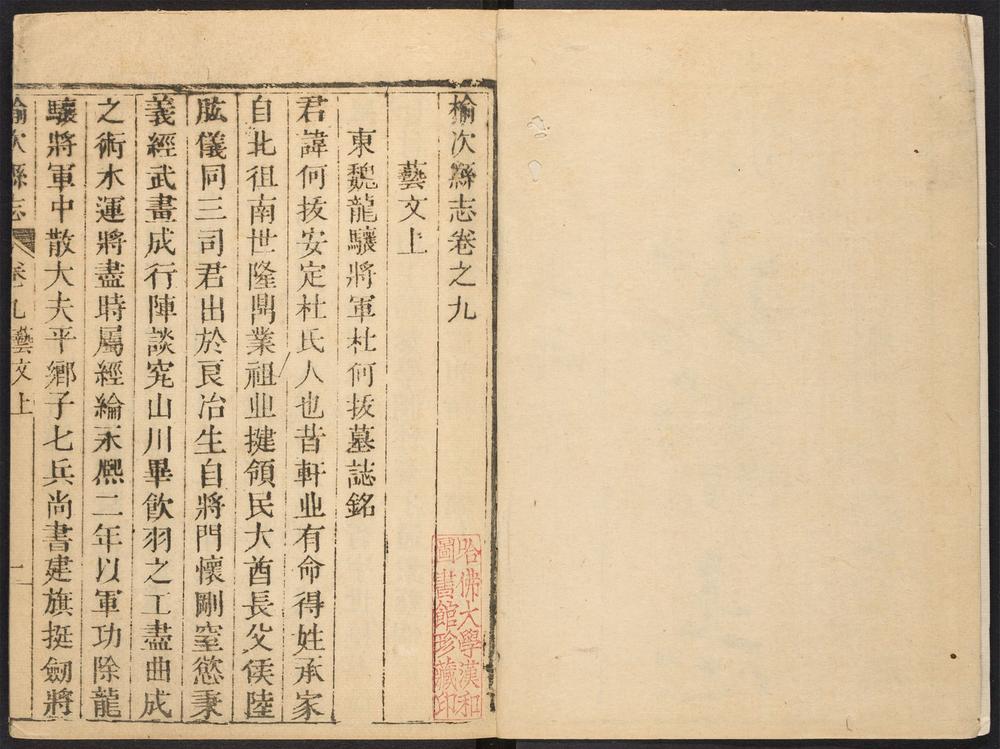 榆次縣志卷之九
藝文上
東魏龍驤將軍杜何拔墓誌銘
君諱何拔安定杜氏人也昔軒丠有命得姓承家
自北徂南世隆鼎業祖丠揵領民大酋長父侯陸
肱儀同三司君出於良冶生自將門懷剛窒慾秉
義經武畫成行陣談究山川畢飲羽之工盡曲成
之術水運將盡時屬經綸永熈二年以軍功除龍
驤將軍中散大夫平鄉子七兵尚書建旗挺劒將
榆次縣志 卷九藝文上 一
哈佛大學漢和
圖書館珍藏印